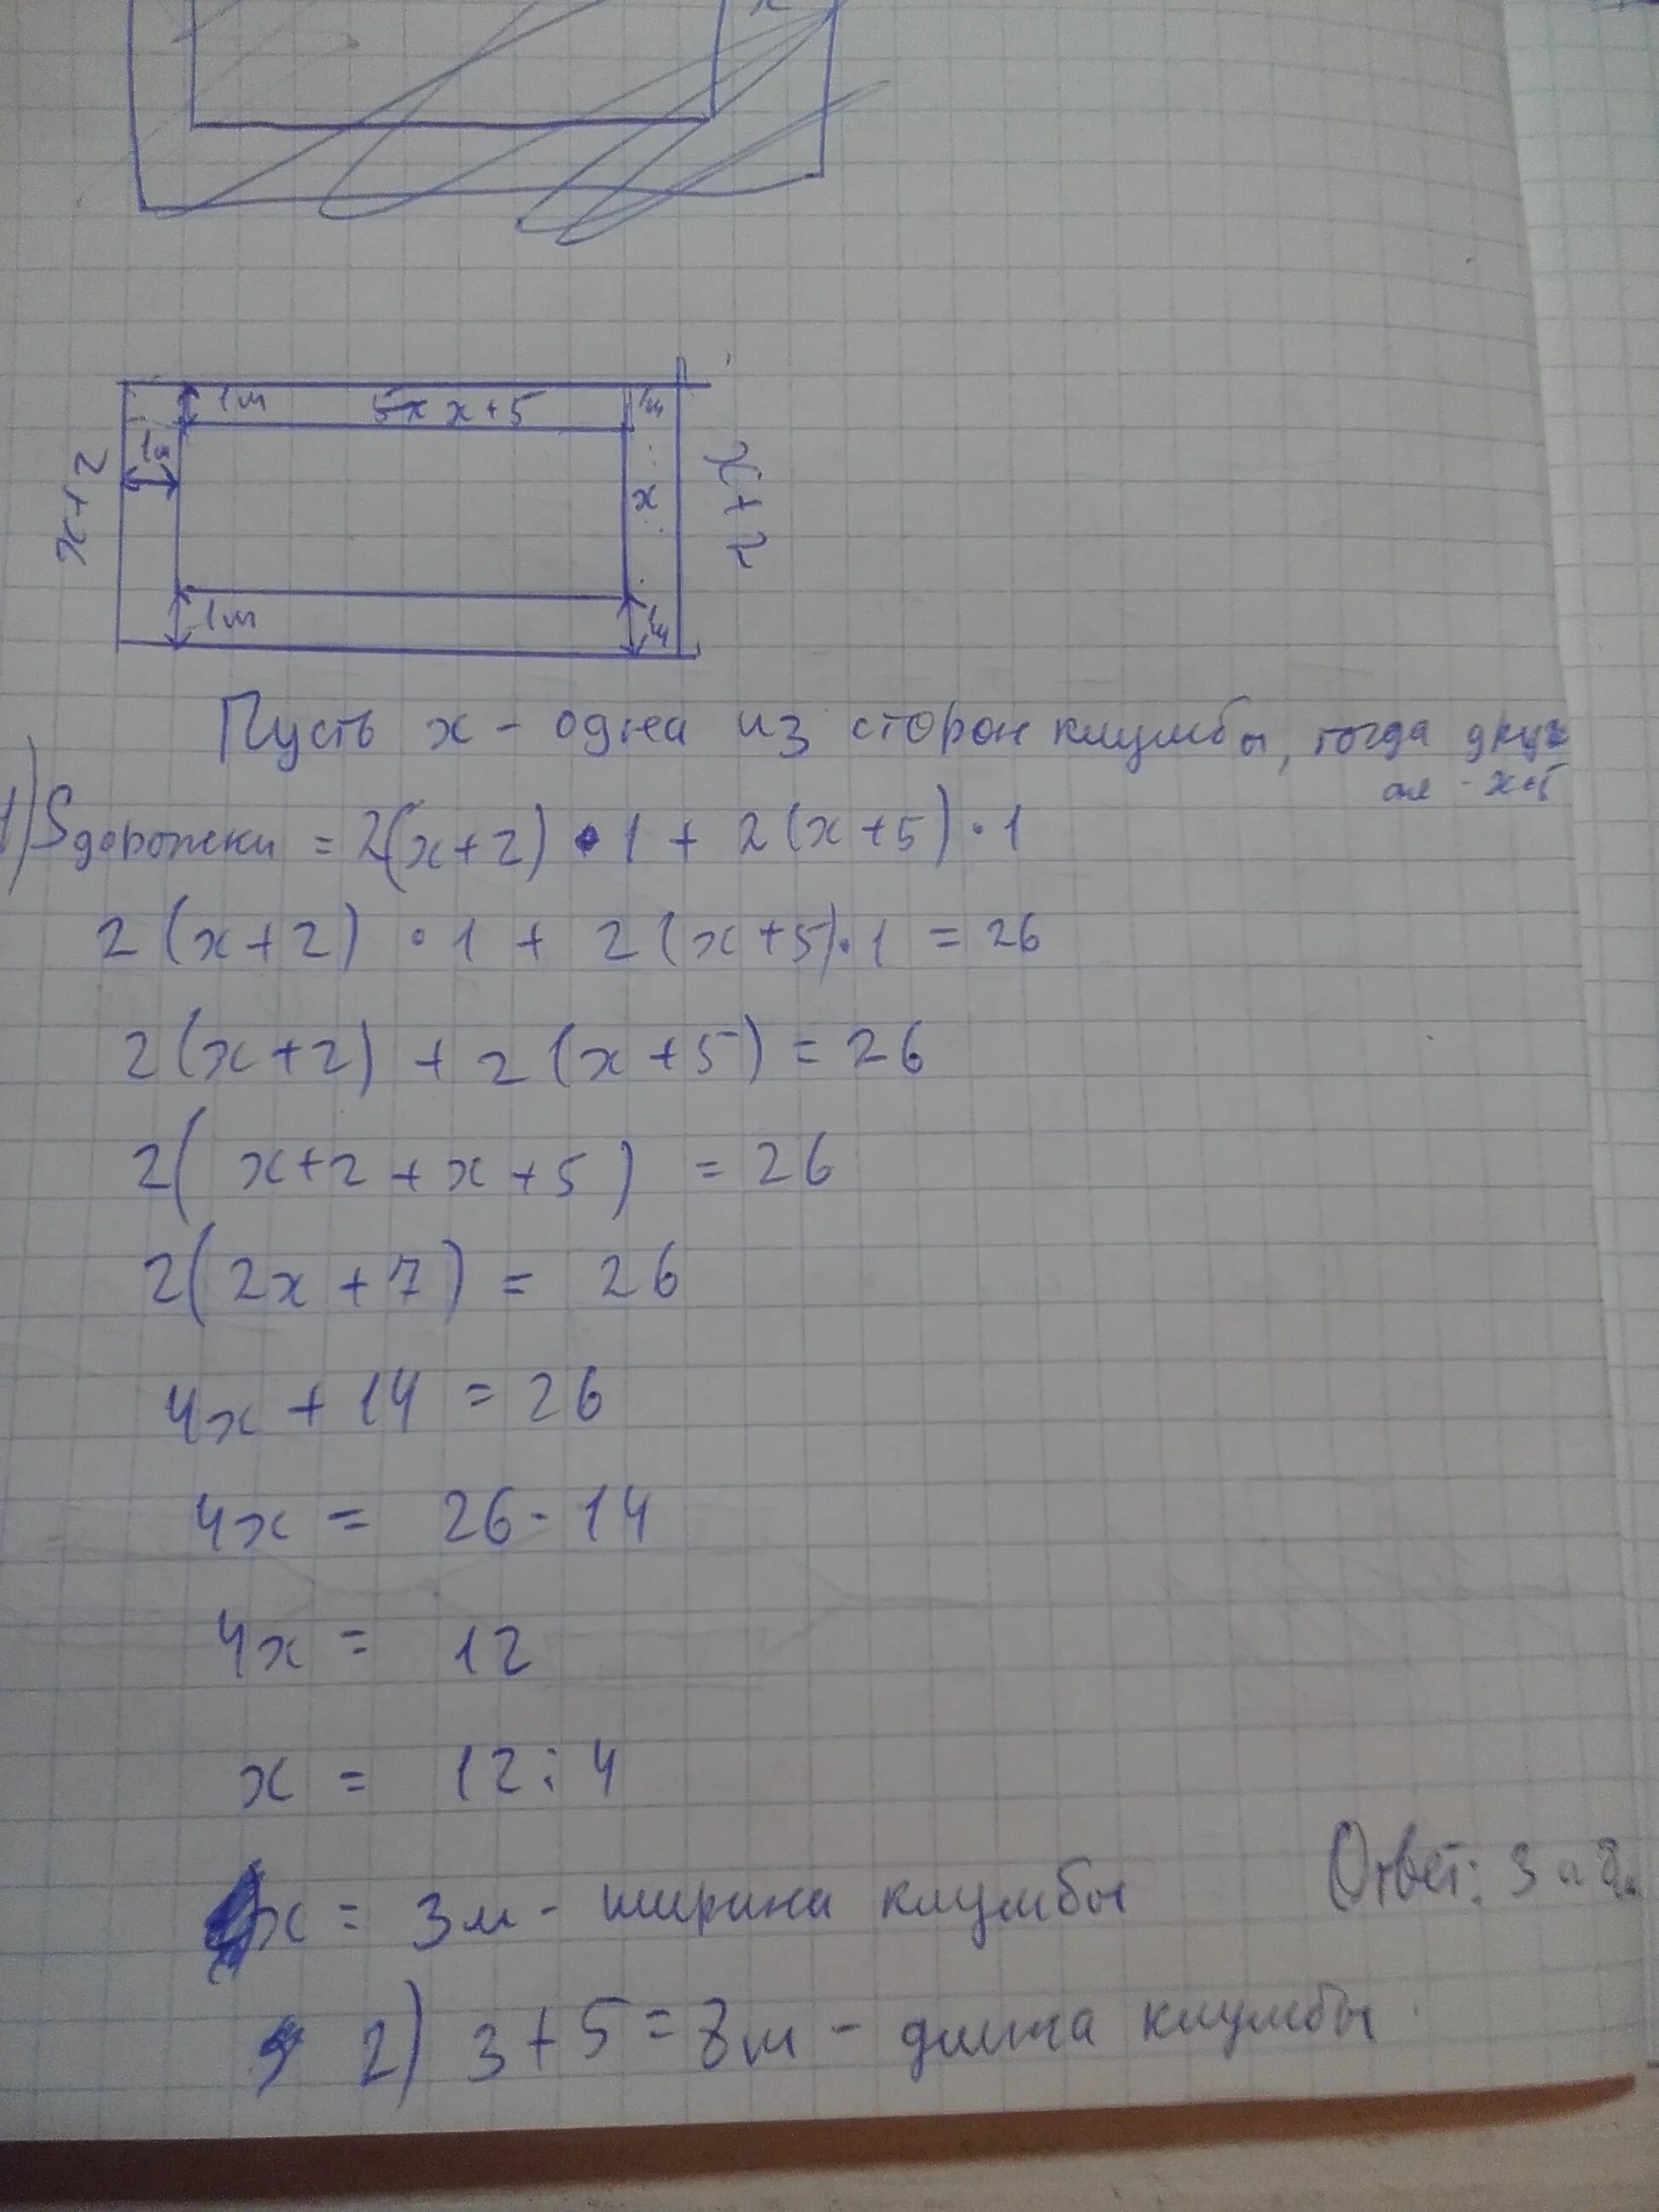 1м 5х х+5 1м
1м
х+2 х х+2
1м 1м
Пусть х - одна из сторон клумбы, тогда друг
ая - х+5
1) Sдорожки = 2(х+2) · 1 + 2(х+5) · 1
2(х+2) · 1 + 2(х+5) · 1 = 26
2(х+2) + 2(х+5) = 26
2( х+2 + х+5) = 26
2(2х+7) = 26
4х + 14 = 26
4х = 26 - 14
4х = 12
х = 12 : 4
х = 3м - ширина клумбы
Ответ: 3 и 8м
2) 3+5=8м - длина клумбы